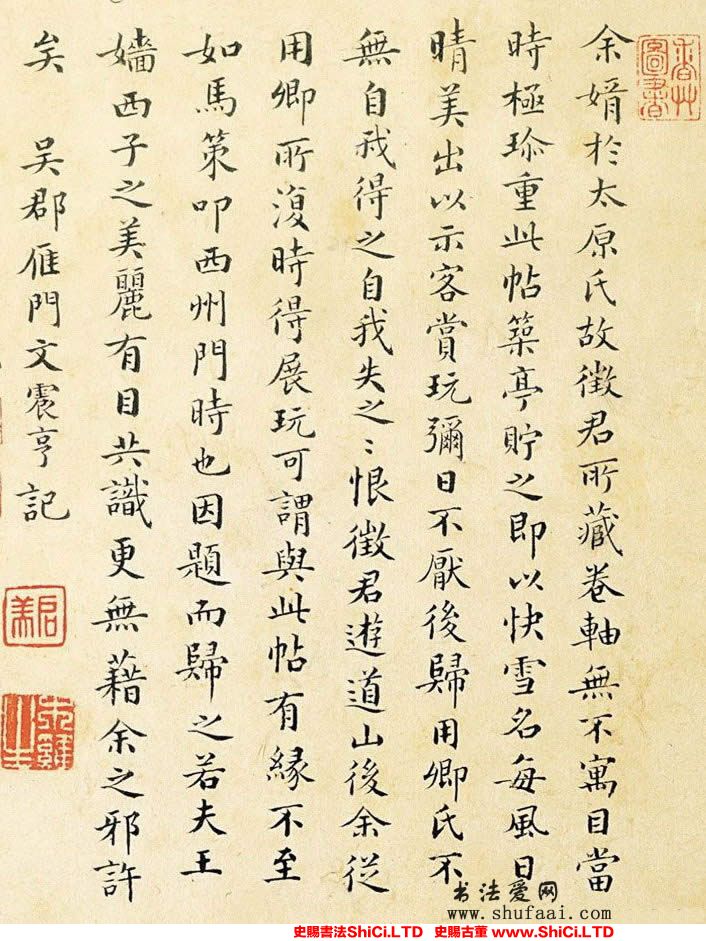 香艸圖書
余婿於太原氏故徵君所藏卷軸無不寓目當
時極珎重此帖築亭貯之即以快雪名每風日
晴美出以示客賞玩彌日不厭後歸用卿氏不
無自我得之自我失之〻恨徵君遊道山後余從
用卿所復時得展玩可謂與此帖有緣不至
如馬策叩西州門時也因題而歸之若夫王
嬙西子之美麗有目共識更無藉余之邪許
矣 吳郡雁門文震亨記
啟美
书法爱网
www.shufaai.com
史賜書法ShiCi.LTD 史賜古董 www.ShiCi.LTD